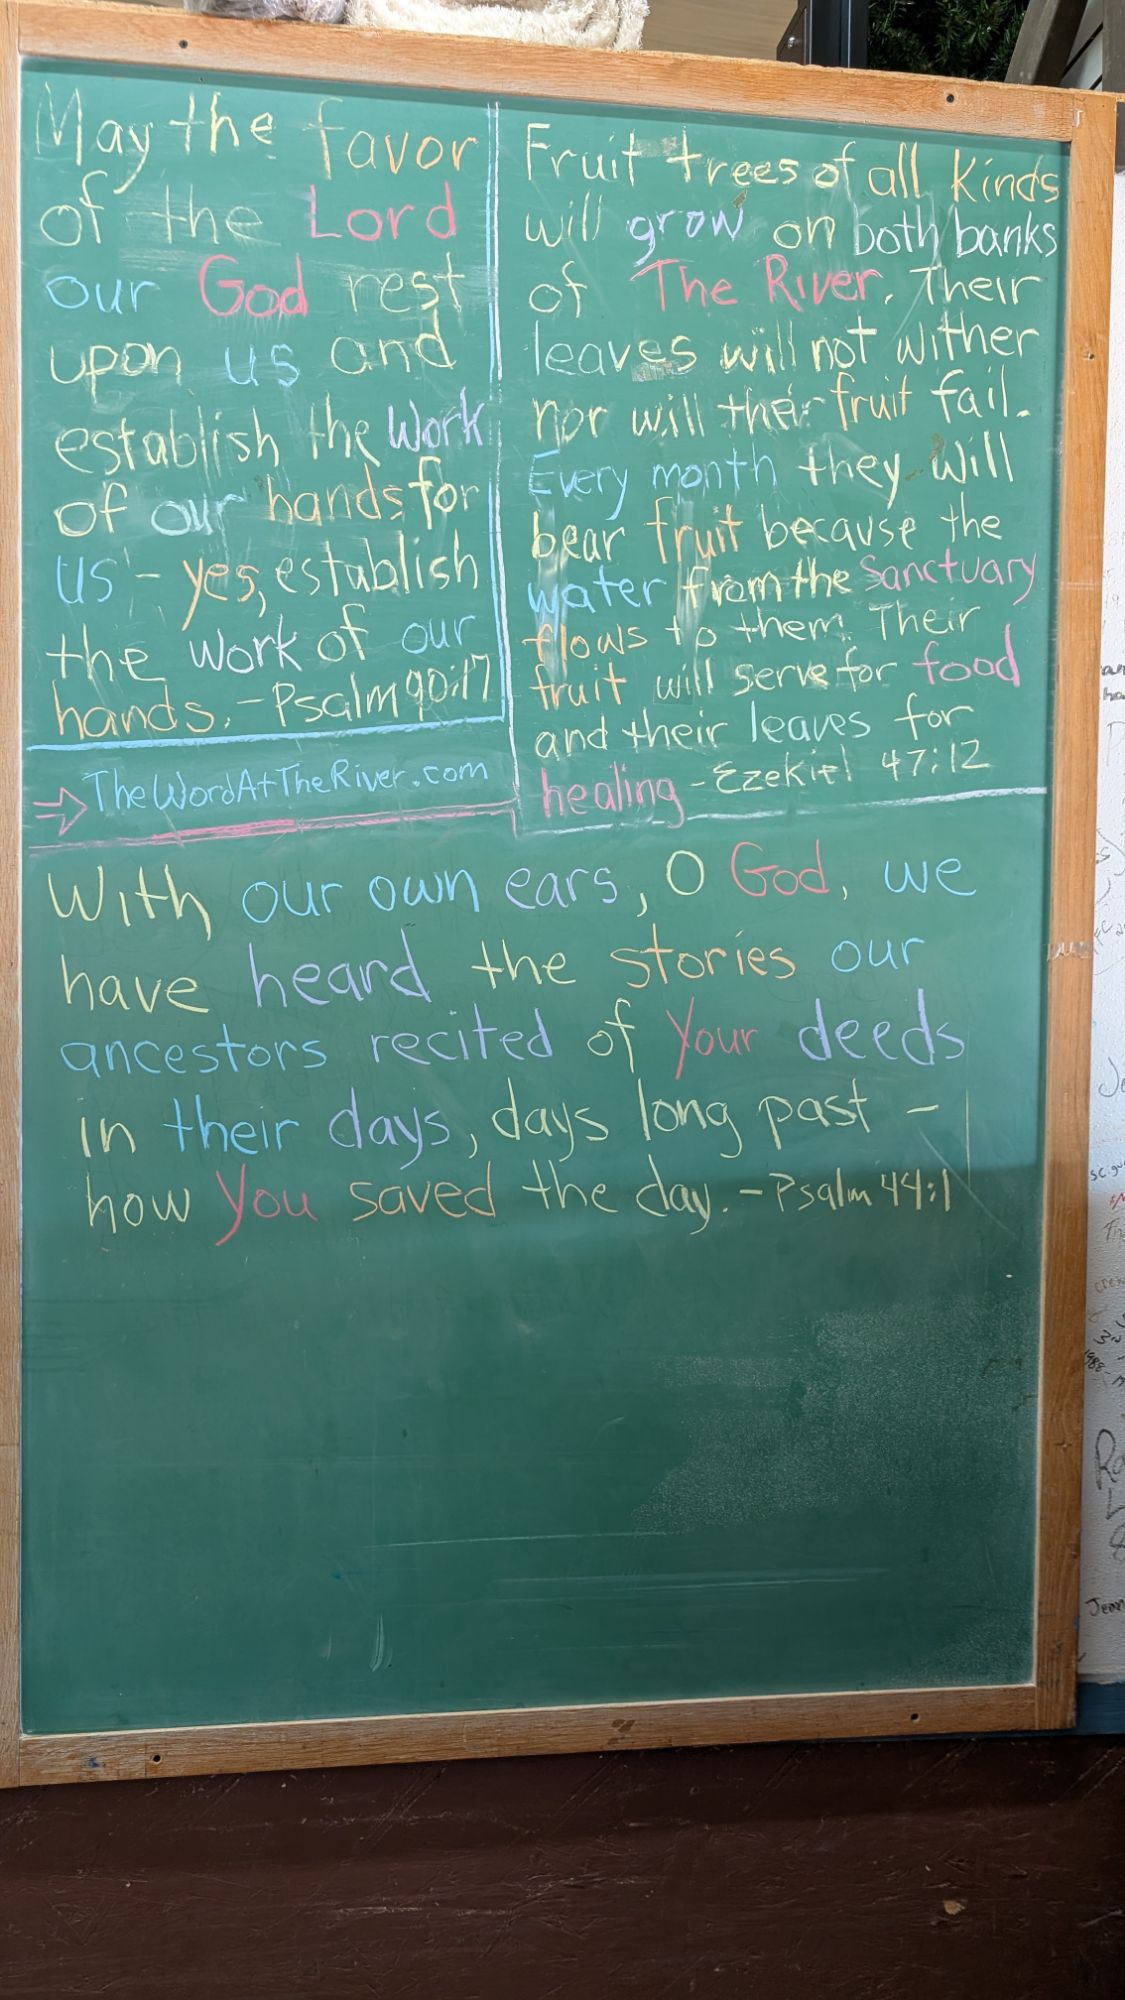 May the favor
of the Lord
our God rest
upon us and
establish the Work
of our hands for
us - yes, establish
the work of our
hands. - Psalm 90:17
→ TheWordAtTheRiver.com
Fruit trees of all Kinds
will grow on both banks
of The River. Their
leaves will not wither
nor will their fruit fail.
Every month they will
bear fruit because the
water from the Sanctuary
flows to them. Their
fruit will serve for food
and their leaves for
healing - Ezekiel 47:12
With our own ears, O God, we
have heard the stories our
ancestors recited of Your deeds
in their days, days long past -
how You saved the day. - Psalm 44:1